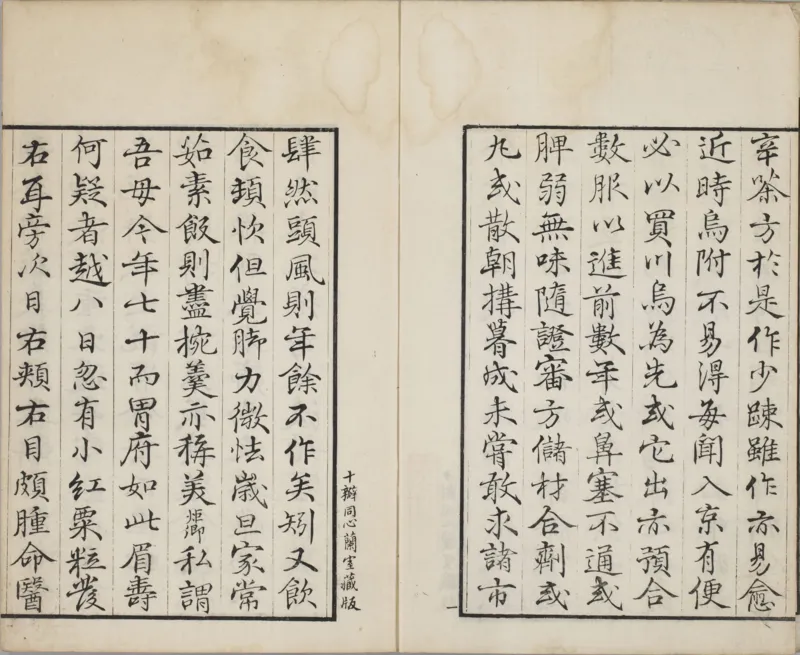 辛茶方於是作少踈雖作亦易愈
近時烏附不易得每聞入京有便
必以買川烏為先或它出亦預合
數服以進前數年或鼻塞不通或
脾弱無味隨證審方儲材合劑或
九或散朝搆暮成未嘗敢求諸市
肆然頭風則年餘不作矣矧又飲
食頗忺但覺脚力微怯歲旦家常
茹素飯則盡椀羹亦稱美㷡私謂
吾母今年七十而胃府如此眉壽
何疑者越八日忽有小紅粟粒發
右耳旁次日右頰右目頗腫命醫
十瓣同心蘭室藏版
一